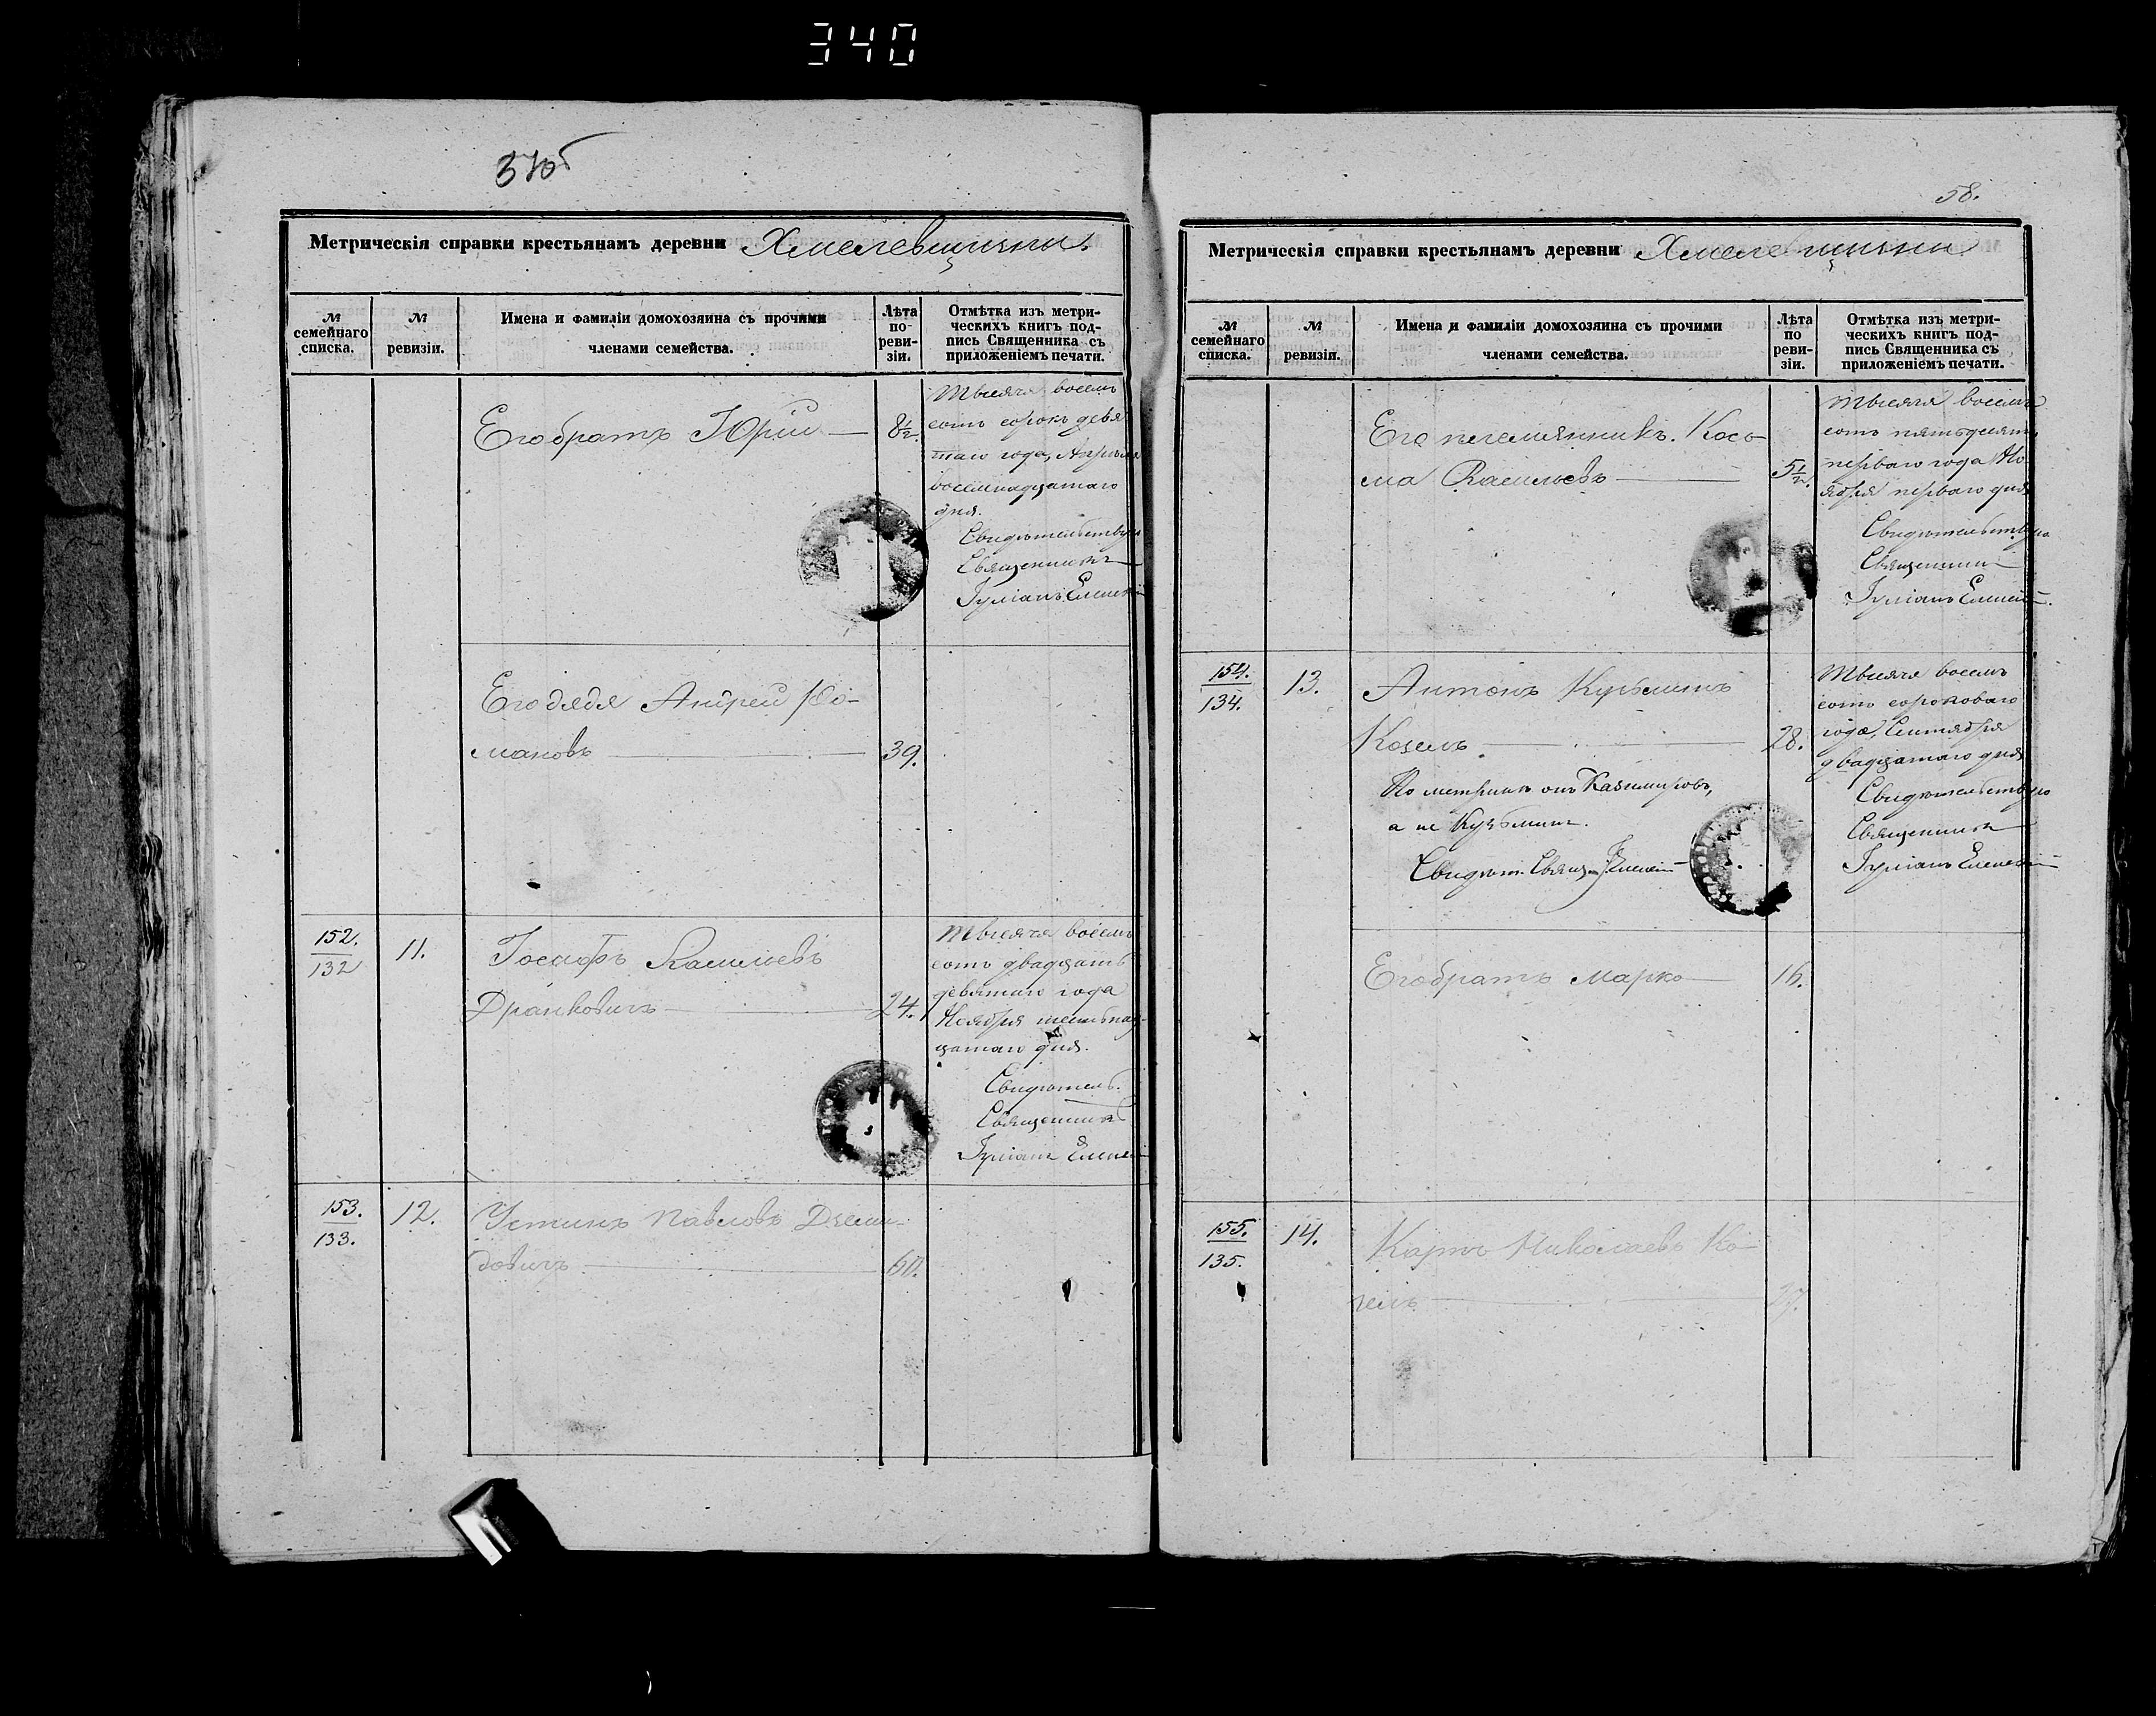 340
58.
Метрическія справки крестьянамъ деревни Хмелевщизны.
№ семейнаго списка.
№ ревизіи.
Имена и фамиліи домохозяина съ прочими
членами семейства.
Лѣта по реви-зіи.
Отмѣтка изъ метри-
ческихъ книгъ под-
пись Священника съ
приложеніемъ печати.
Его братъ Юрій — 8½.
Тысяча восемь
сотъ сорокъ девя
таго года, Апрѣля
восемнадцатаго
дня.
Свидѣтельствую
Священникъ
Іуліанъ
Его дядя Андрей
мановъ — 39.
152.
132
11.
Іосифъ Васильевъ
Драпковичъ — 24.
Тысяча восемь
сотъ двадцать
девятаго года
Ноября
цатаго дня.
Свидѣтель.
Священникъ
Іуліанъ
153.
133.
12.
Устинъ Павловъ
довичъ — 60.
Метрическія справки крестьянамъ деревни
№ семейнаго списка.
№ ревизіи.
Имена и фамиліи домохозяина съ прочими
членами семейства.
Лѣта по реви-зіи.
Отмѣтка изъ метри-
ческихъ книгъ под-
пись Священника съ
приложеніемъ печати.
Его племянникъ. Кось
ма Васильевъ — 5½.
Тысяча восемь
сотъ пятьдесятъ
перваго года Но
ября перваго дня
Свидѣтельствую
Священникъ
Іуліанъ
154.
134.
13.
Антонъ Кузьминъ
Козелъ — 28.
По метрикѣ онъ Казимировъ,
а не Кузьминъ.
Свидѣт. Свящ.
Тысяча восемь
сотъ сороковаго
года, Сентября
двадцатаго дня
Свидѣтельствую
Священникъ
Іуліанъ
Его братъ Марко — 16.
155.
135.
14.
Карпъ Николаевъ Ко-
зелъ — 27.